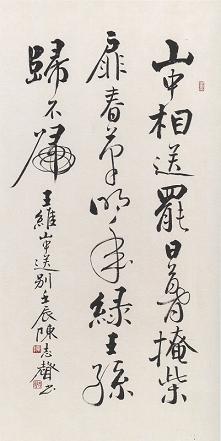 山中相送罷日暮掩柴
扉春草明年綠王孫
歸不歸
王維山中送別壬辰陳志聲書